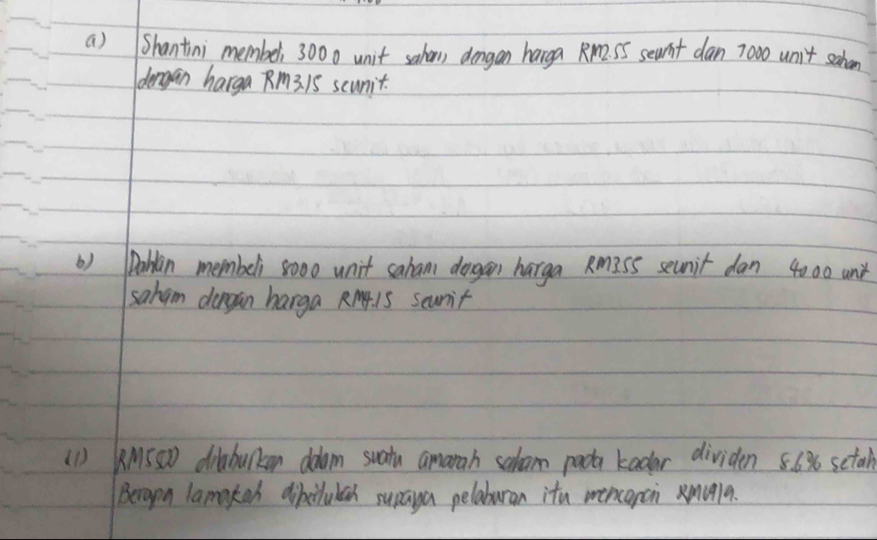 a) Shantini membeli 3000 unit saham dengan harga RM2.55 seunit dan 7000 unit saham
dengan harga RM3.15 seunit.
b) Dahlan membeli 8000 unit saham dengan harga RM3.55 seunit dan 4000 unit
saham dengan harga RM4.15 seunit
RM5500 dilaburkan dalam suatu amanah saham pada kadar dividen 8.6% setah
Berapa lamakah diperlukan supaya pelaburan itu mencapai